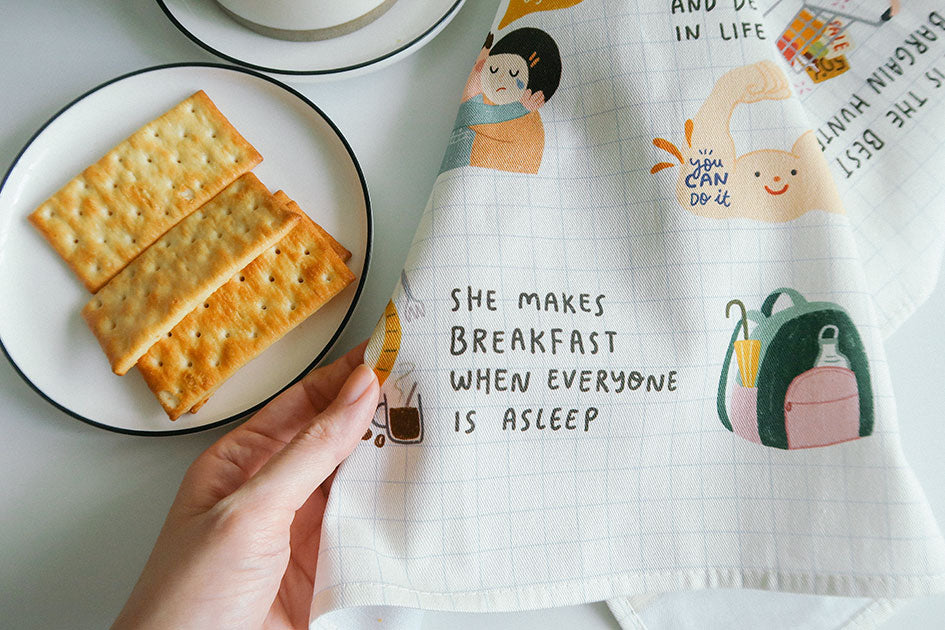 AND BE
IN LIFE
YOU
CAN
DO it
SHE MAKES
BREAKFAST
WHEN EVERYONE
IS ASLEEP
SALE
50%
IS THE BEST
BARGAIN HUNT